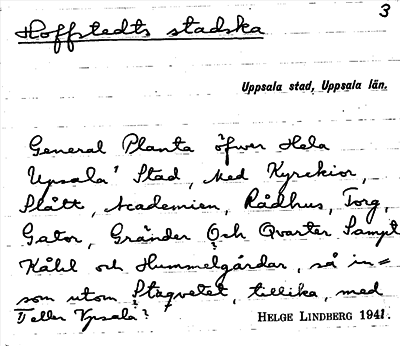 3
Hoffstedts stadska
Uppsala stad, Uppsala län.
General Planta öfwer Hela
Upsala' Stad, Med Kyrckior,
Slått, Academien, Rådhus, Torg,
Gator, Gränder Och Qvarter Sampt
Kåhl och Hummelgårdar, så in=
som utom Staqvetet, tillika, med
? eller Vpsala?
HELGE LINDBERG 1941.